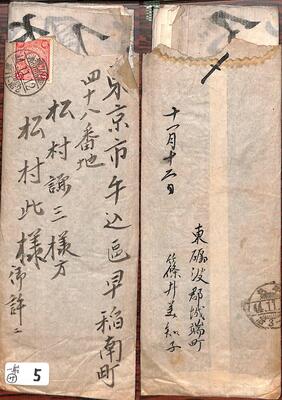 東京市牛込區早稲南町
四十八番地
松村謙三様方
松村此様
御許ニ
5
十一月十二日
東礪波郡城端町
篠井美知子